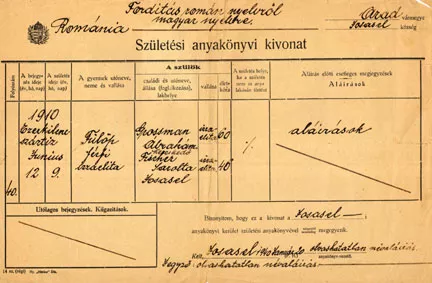 Fordítás román nyelvről
magyar nyelvre.
Románia
Arad vármegye
Josasel község
Születési anyakönyvi kivonat
Folyószám
A bejegyzés ideje (év, hó, nap)
A születés ideje (év, hó, nap)
A gyermek utóneve, neme és vallása
A szülők
családi és utóneve, állása (foglalkozása), lakhelye
vallása
életkora
A születés helye, ha a
Aláírás előtti esetleges megjegyzések
Aláírások
40.
1910
Ezerkilencszáztíz
Junius
12 9.
Fülöp
férfi
izraelita
Grossman
Ábrahám
kereskedő
Fischer
Sarolta
Josasel
izraelita 60
izraelita 40
%
aláírások
Utólagos bejegyzések. Kiigazítások.
Bizonyítom, hogy ez a kivonat a Josasel -i
anyakönyvi kerület születési anyakönyvével megegyezik.
Kelt, Josasel 1940 Január 20 olvashatatlan névaláírás
Jegyző: olvashatatlan névaláírás
anyakönyvvezető.